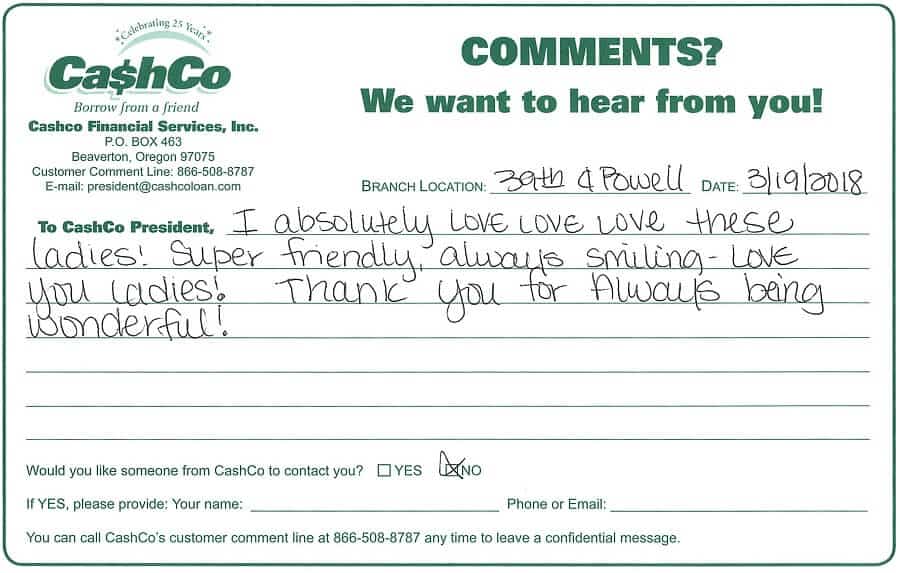 Celebrating 25 Years
Ca$hCo
Borrow from a friend
Cashco Financial Services, Inc.
P.O. BOX 463
Beaverton, Oregon 97075
Customer Comment Line: 866-508-8787
E-mail: president@cashcoloan.com
COMMENTS?
We want to hear from you!
BRANCH LOCATION: 39th & Powell DATE: 3/19/2018
To CashCo President, I absolutely LOVE LOVE LOVE these
ladies! Super friendly, always smiling - LOVE
you ladies! Thank you for Always being
wonderful!
Would you like someone from CashCo to contact you? ☐ YES ☒ NO
If YES, please provide: Your name: Phone or Email:
You can call CashCo's customer comment line at 866-508-8787 any time to leave a confidential message.